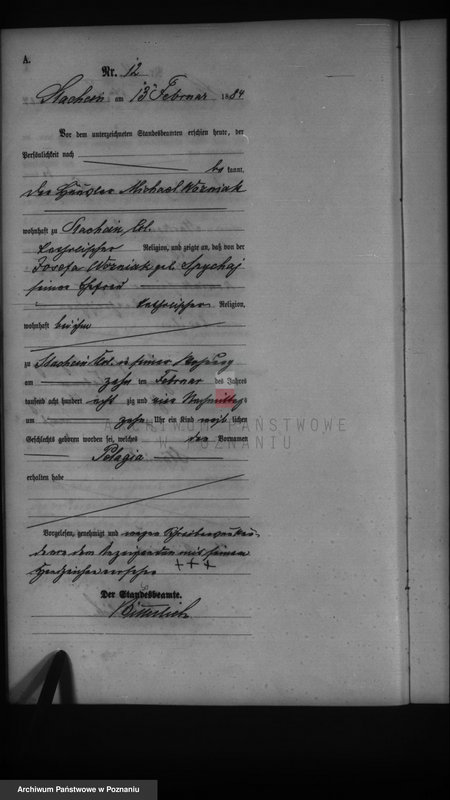 A.
Nr. 12
am 13 Februar 1884
Vor dem unterzeichneten Standesbeamten erschien heute, der
Persönlichkeit nach
be kannt,
der Häusler Michael Wozniak
wohnhaft zu
katholischer Religion, und zeigte an, daß von der
Josefa Wozniak geb. Spychaj
seiner Ehefrau
katholischer Religion,
wohnhaft bei ihm
zu in seiner Wohnung
am zehn ten Februar des Jahres
tausend acht hundert acht zig und vier Nachmittags
um zehn Uhr ein Kind weib lichen
Geschlechts geboren worden sei, welches den Vornamen
Pelagia
erhalten habe
Vorgelesen, genehmigt und wegen
dem Anzeigenden mit seinem
Handzeichen versehen +++
Der Standesbeamte.
ARCHIWUM PAŃSTWOWE
W POZNANIU
Archiwum Państwowe w Poznaniu